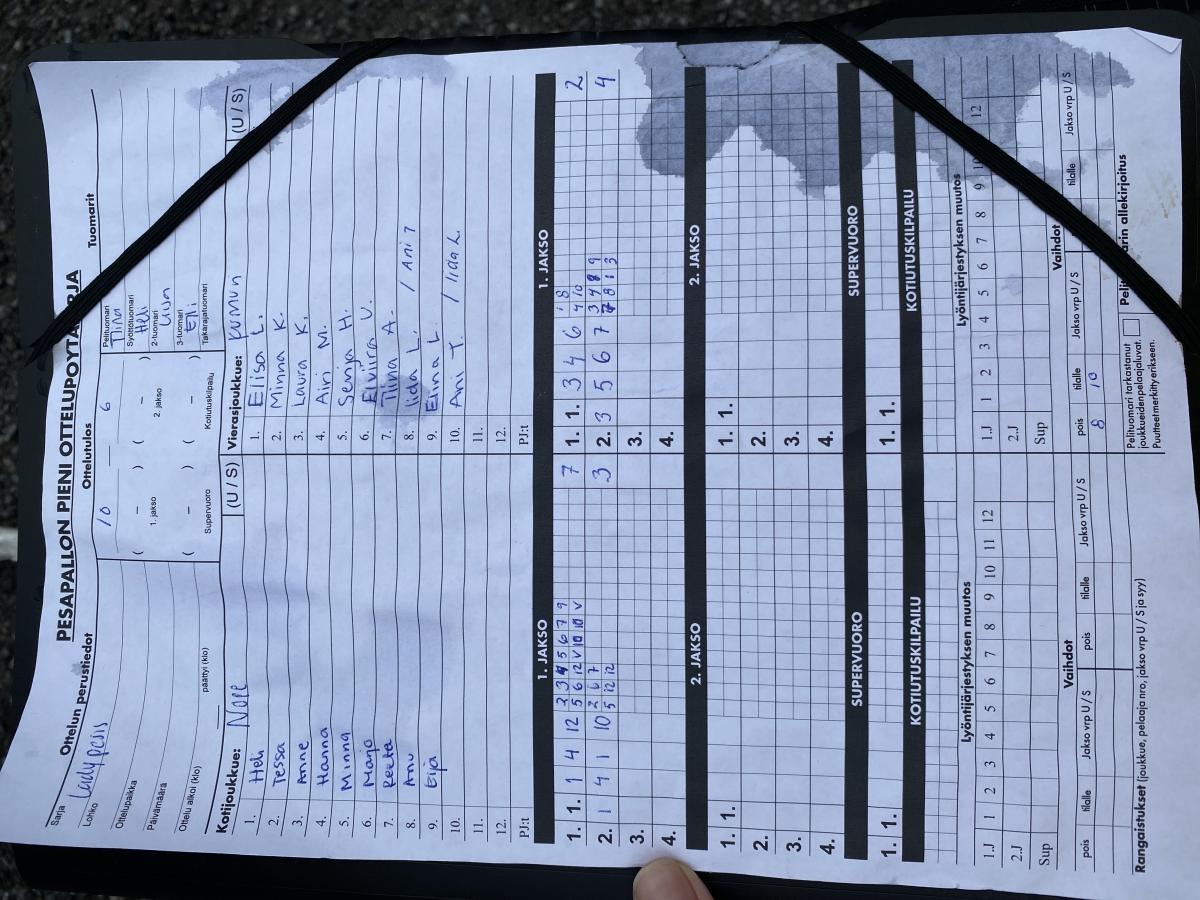 PESÄPALLON PIENI OTTELUPÖYTÄKIRJA
Ottelun perustiedot
Ottelutulos
Tuomarit
Sarja
Lohko Ladypesis
Ottelupaikka
Päivämäärä
Ottelu alkoi (klo) päättyi (klo)
10 — 6
( – ) ( – )
1. jakso 2. jakso
( – ) ( – )
Supervuoro Kotiutuskilpailu
Pelituomari
Tiina
Syöttötuomari
Heli
2-tuomari
3-tuomari
Elli
Takarajatuomari
Kotijoukkue: (U / S)
1. Heli
2. Tessa
3. Anne
4. Hanna
5. Minna
6. Marjo
7. Reeta
8. Anu
9. Eija
10.
11.
12.
PJ:t
Vierasjoukkue: (U / S)
1. Elisa L.
2. Minna K.
3. Laura K.
4. Airi M.
5. Senja H.
6. Elviira V.
7. Tiina A.
8. Iida L. / Ani T
9. Elina L
10. Ani T. / Iida L.
11.
12.
PJ:t
1. JAKSO 1. JAKSO
1. 1. 1 4 12 7
2. 1 4 1 10 3
3.
4.
1. 1. 3 4 6 2
2. 3 5 6 7 4
3.
4.
2. JAKSO 2. JAKSO
1. 1. 1. 1.
2. 2.
3. 3.
4. 4.
SUPERVUORO SUPERVUORO
1. 1. 1. 1.
KOTIUTUSKILPAILU KOTIUTUSKILPAILU
Lyöntijärjestyksen muutos Lyöntijärjestyksen muutos
1.J 1 2 3 4 5 6 7 8 9 10 11 12
2.J
Sup
1.J 1 2 3 4 5 6 7 8 9 10 12
2.J
Sup
Vaihdot Vaihdot
pois tilalle Jakso vrp U / S pois tilalle Jakso vrp U / S
pois tilalle Jakso vrp U / S tilalle Jakso vrp U / S
8 10
Rangaistukset (joukkue, pelaaja nro, jakso vrp U / S ja syy)
Pelituomari tarkastanut
joukkueidenpelaajaluvat.
Puutteetmerkittyerikseen.
allekirjoitus